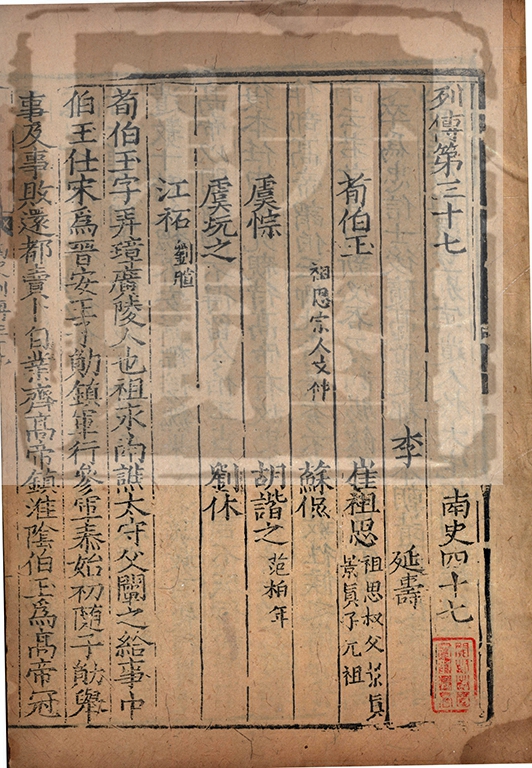 列傳第三十七 南史四十七
李 延壽
荀伯玉 崔祖思 祖思叔父景真 景真子元祖
祖思宗人文仲 蘇侃
虞悰 胡諧之 范柏年
虞玩之 劉休
江祏 劉暄
荀伯玉字弄璋廣陵人也祖永南譙太守父闡之給事中
伯玉仕宋為晉安王子勛鎮軍行參軍泰始初隨子勛舉
事及事敗還都賣卜自業齊高帝鎮淮陰伯玉為高帝冠